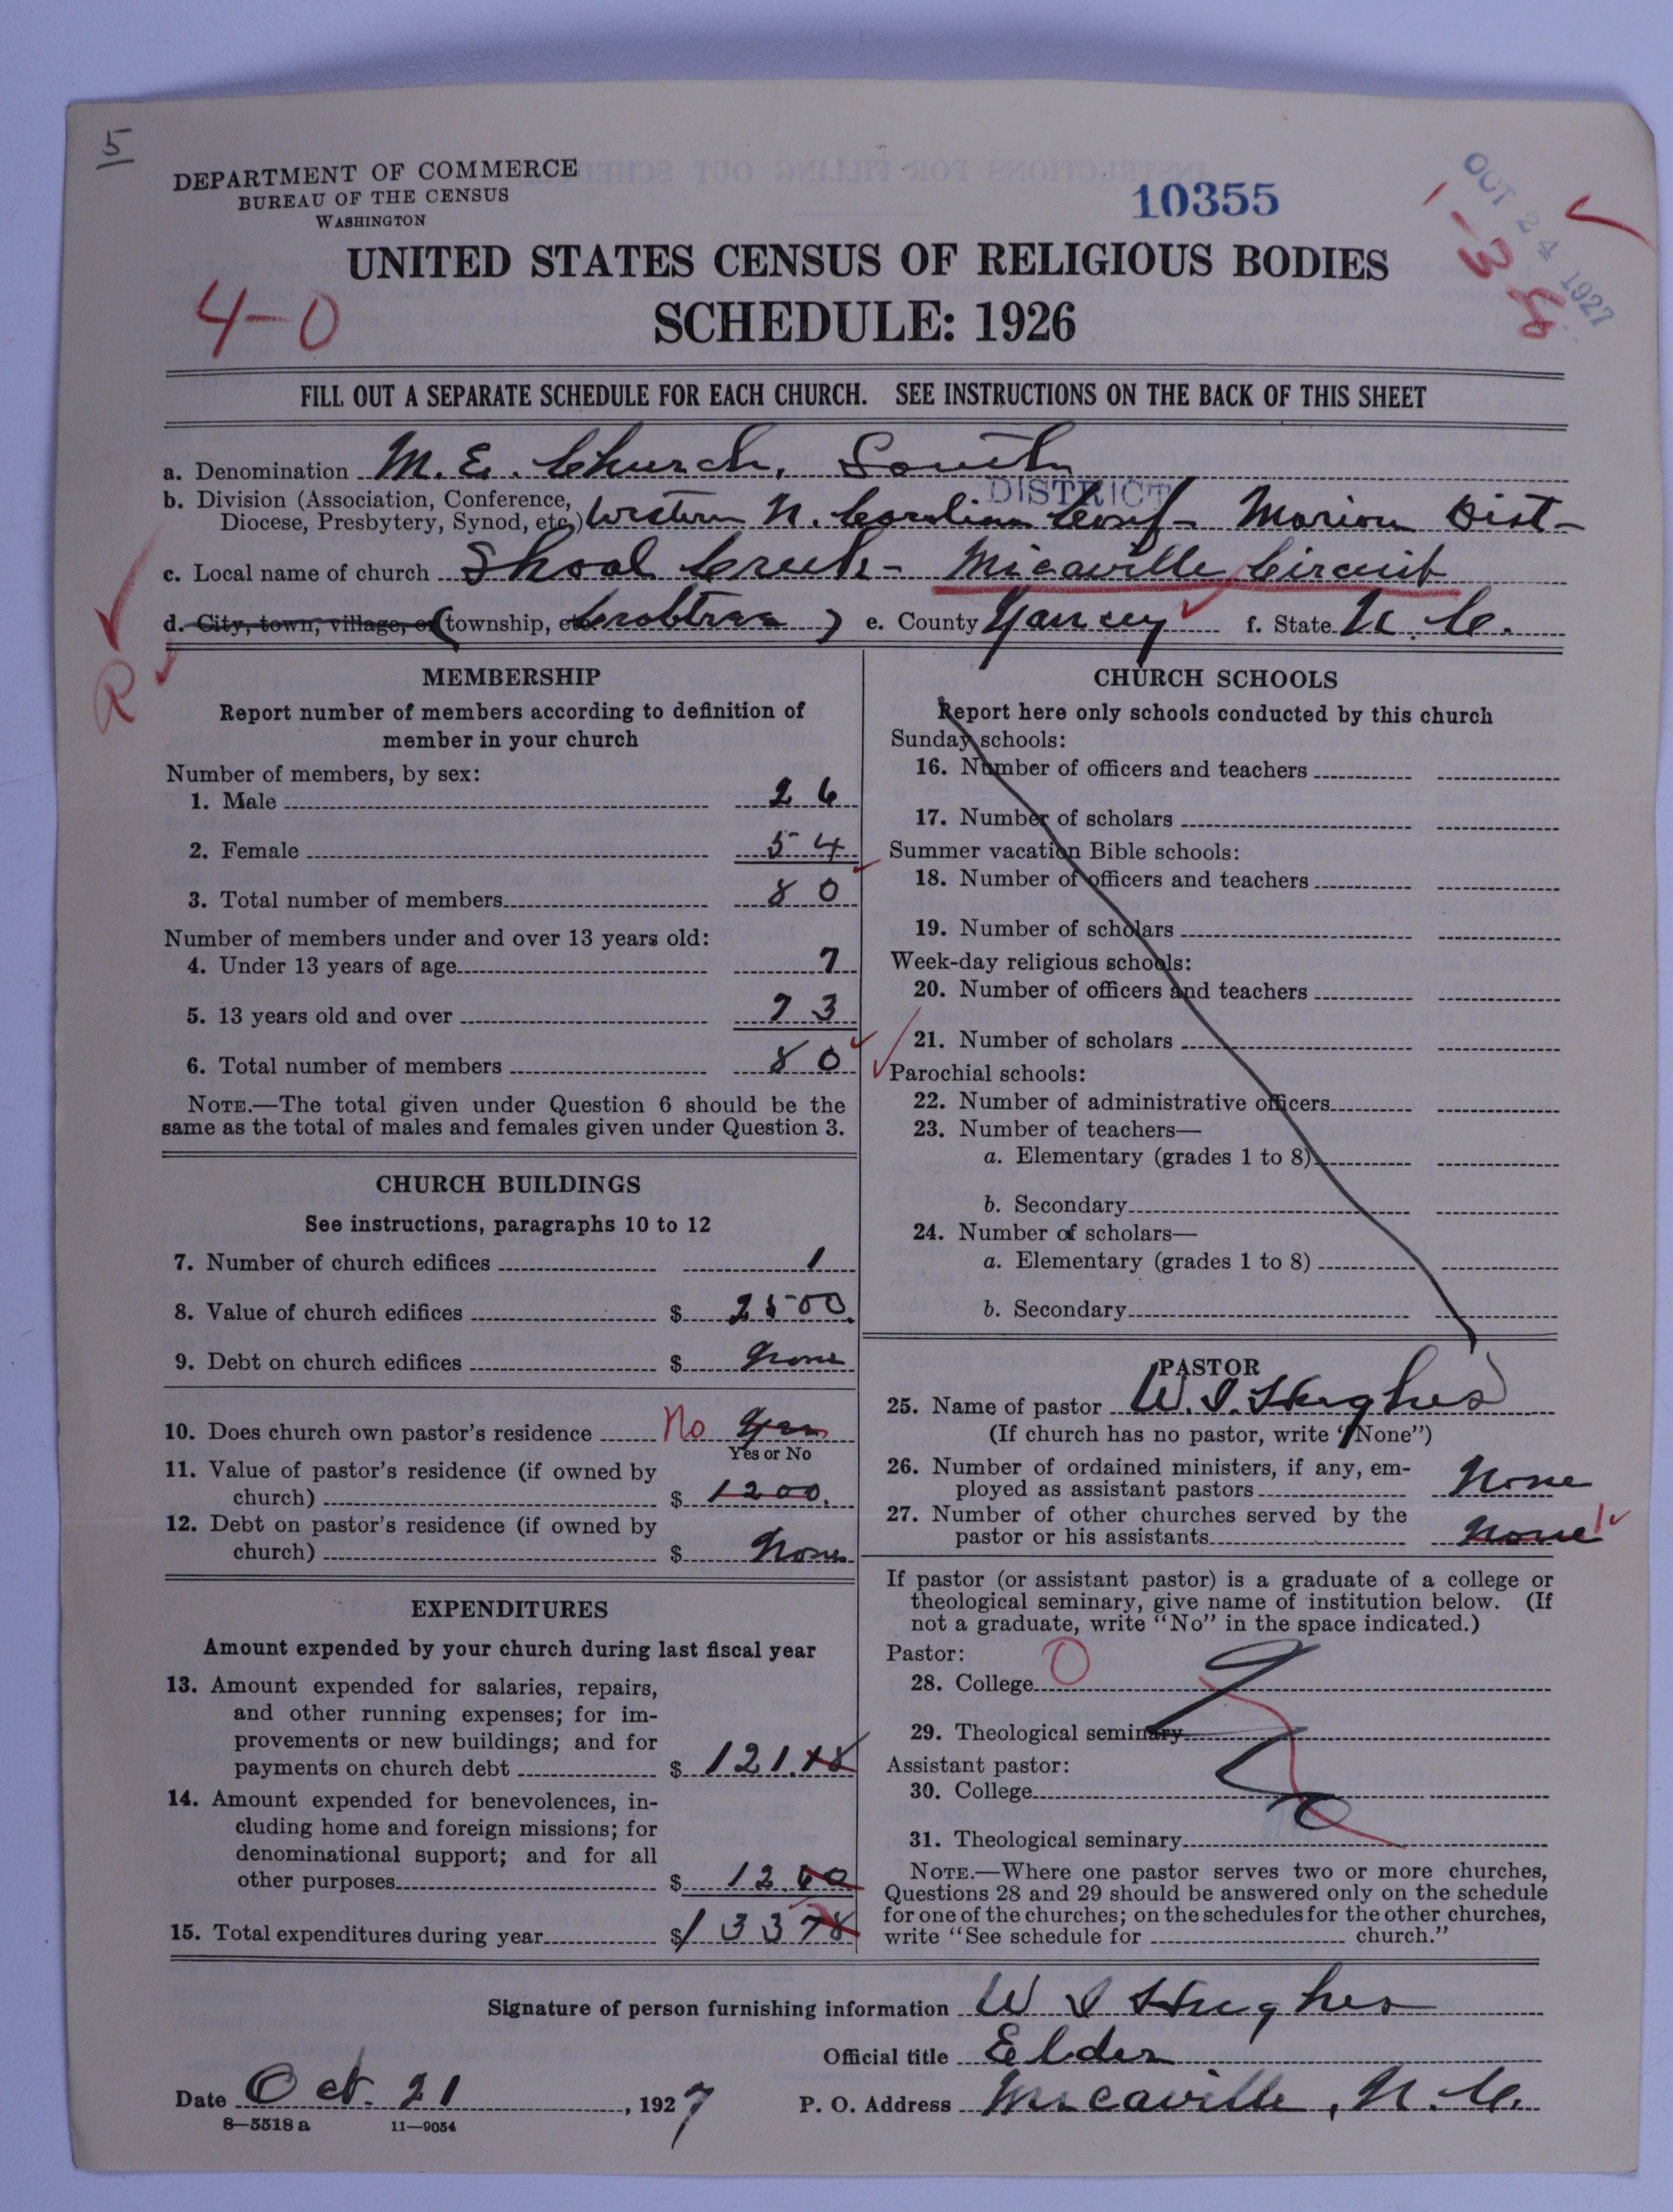 5
DEPARTMENT OF COMMERCE
BUREAU OF THE CENSUS
WASHINGTON
10355
OCT 24 1927
1-38
UNITED STATES CENSUS OF RELIGIOUS BODIES
4-0
SCHEDULE: 1926
FILL OUT A SEPARATE SCHEDULE FOR EACH CHURCH. SEE INSTRUCTIONS ON THE BACK OF THIS SHEET
a. Denomination M. E. Church, South
DISTRICT
b. Division (Association, Conference, Diocese, Presbytery, Synod, etc.) Western N. Carolina Conf- Marion Dist-
c. Local name of church Shoal Creek- Micaville Circuit
d. City, town, village, or (township, etc. Crabtree) e. County Yancey f. State N. C.
R
MEMBERSHIP
Report number of members according to definition of
member in your church
Number of members, by sex:
1. Male 26
2. Female 54
3. Total number of members 80
Number of members under and over 13 years old:
4. Under 13 years of age 7
5. 13 years old and over 73
6. Total number of members 80
NOTE.—The total given under Question 6 should be the
same as the total of males and females given under Question 3.
CHURCH BUILDINGS
See instructions, paragraphs 10 to 12
7. Number of church edifices 1
8. Value of church edifices $ 2500.
9. Debt on church edifices $ None
10. Does church own pastor's residence No Yes
Yes or No
11. Value of pastor's residence (if owned by
church) $ 1200.
12. Debt on pastor's residence (if owned by
church) $ None
EXPENDITURES
Amount expended by your church during last fiscal year
13. Amount expended for salaries, repairs,
and other running expenses; for im-
provements or new buildings; and for
payments on church debt $ 121.18
14. Amount expended for benevolences, in-
cluding home and foreign missions; for
denominational support; and for all
other purposes $ 12.60
15. Total expenditures during year $ 133 78
CHURCH SCHOOLS
Report here only schools conducted by this church
Sunday schools:
16. Number of officers and teachers
17. Number of scholars
Summer vacation Bible schools:
18. Number of officers and teachers
19. Number of scholars
Week-day religious schools:
20. Number of officers and teachers
21. Number of scholars
Parochial schools:
22. Number of administrative officers
23. Number of teachers—
a. Elementary (grades 1 to 8)
b. Secondary
24. Number of scholars—
a. Elementary (grades 1 to 8)
b. Secondary
PASTOR
25. Name of pastor W. I. Hughes
(If church has no pastor, write "None")
26. Number of ordained ministers, if any, em-
ployed as assistant pastors None
27. Number of other churches served by the
pastor or his assistants None 1
If pastor (or assistant pastor) is a graduate of a college or
theological seminary, give name of institution below. (If
not a graduate, write "No" in the space indicated.)
Pastor:
28. College 0
29. Theological seminary
Assistant pastor:
30. College
31. Theological seminary
NOTE.—Where one pastor serves two or more churches,
Questions 28 and 29 should be answered only on the schedule
for one of the churches; on the schedules for the other churches,
write "See schedule for church."
Signature of person furnishing information W I Hughes
Official title Elder
Date Oct. 21, 1927 P. O. Address Micaville, N. C.
8-5518 a 11-9054